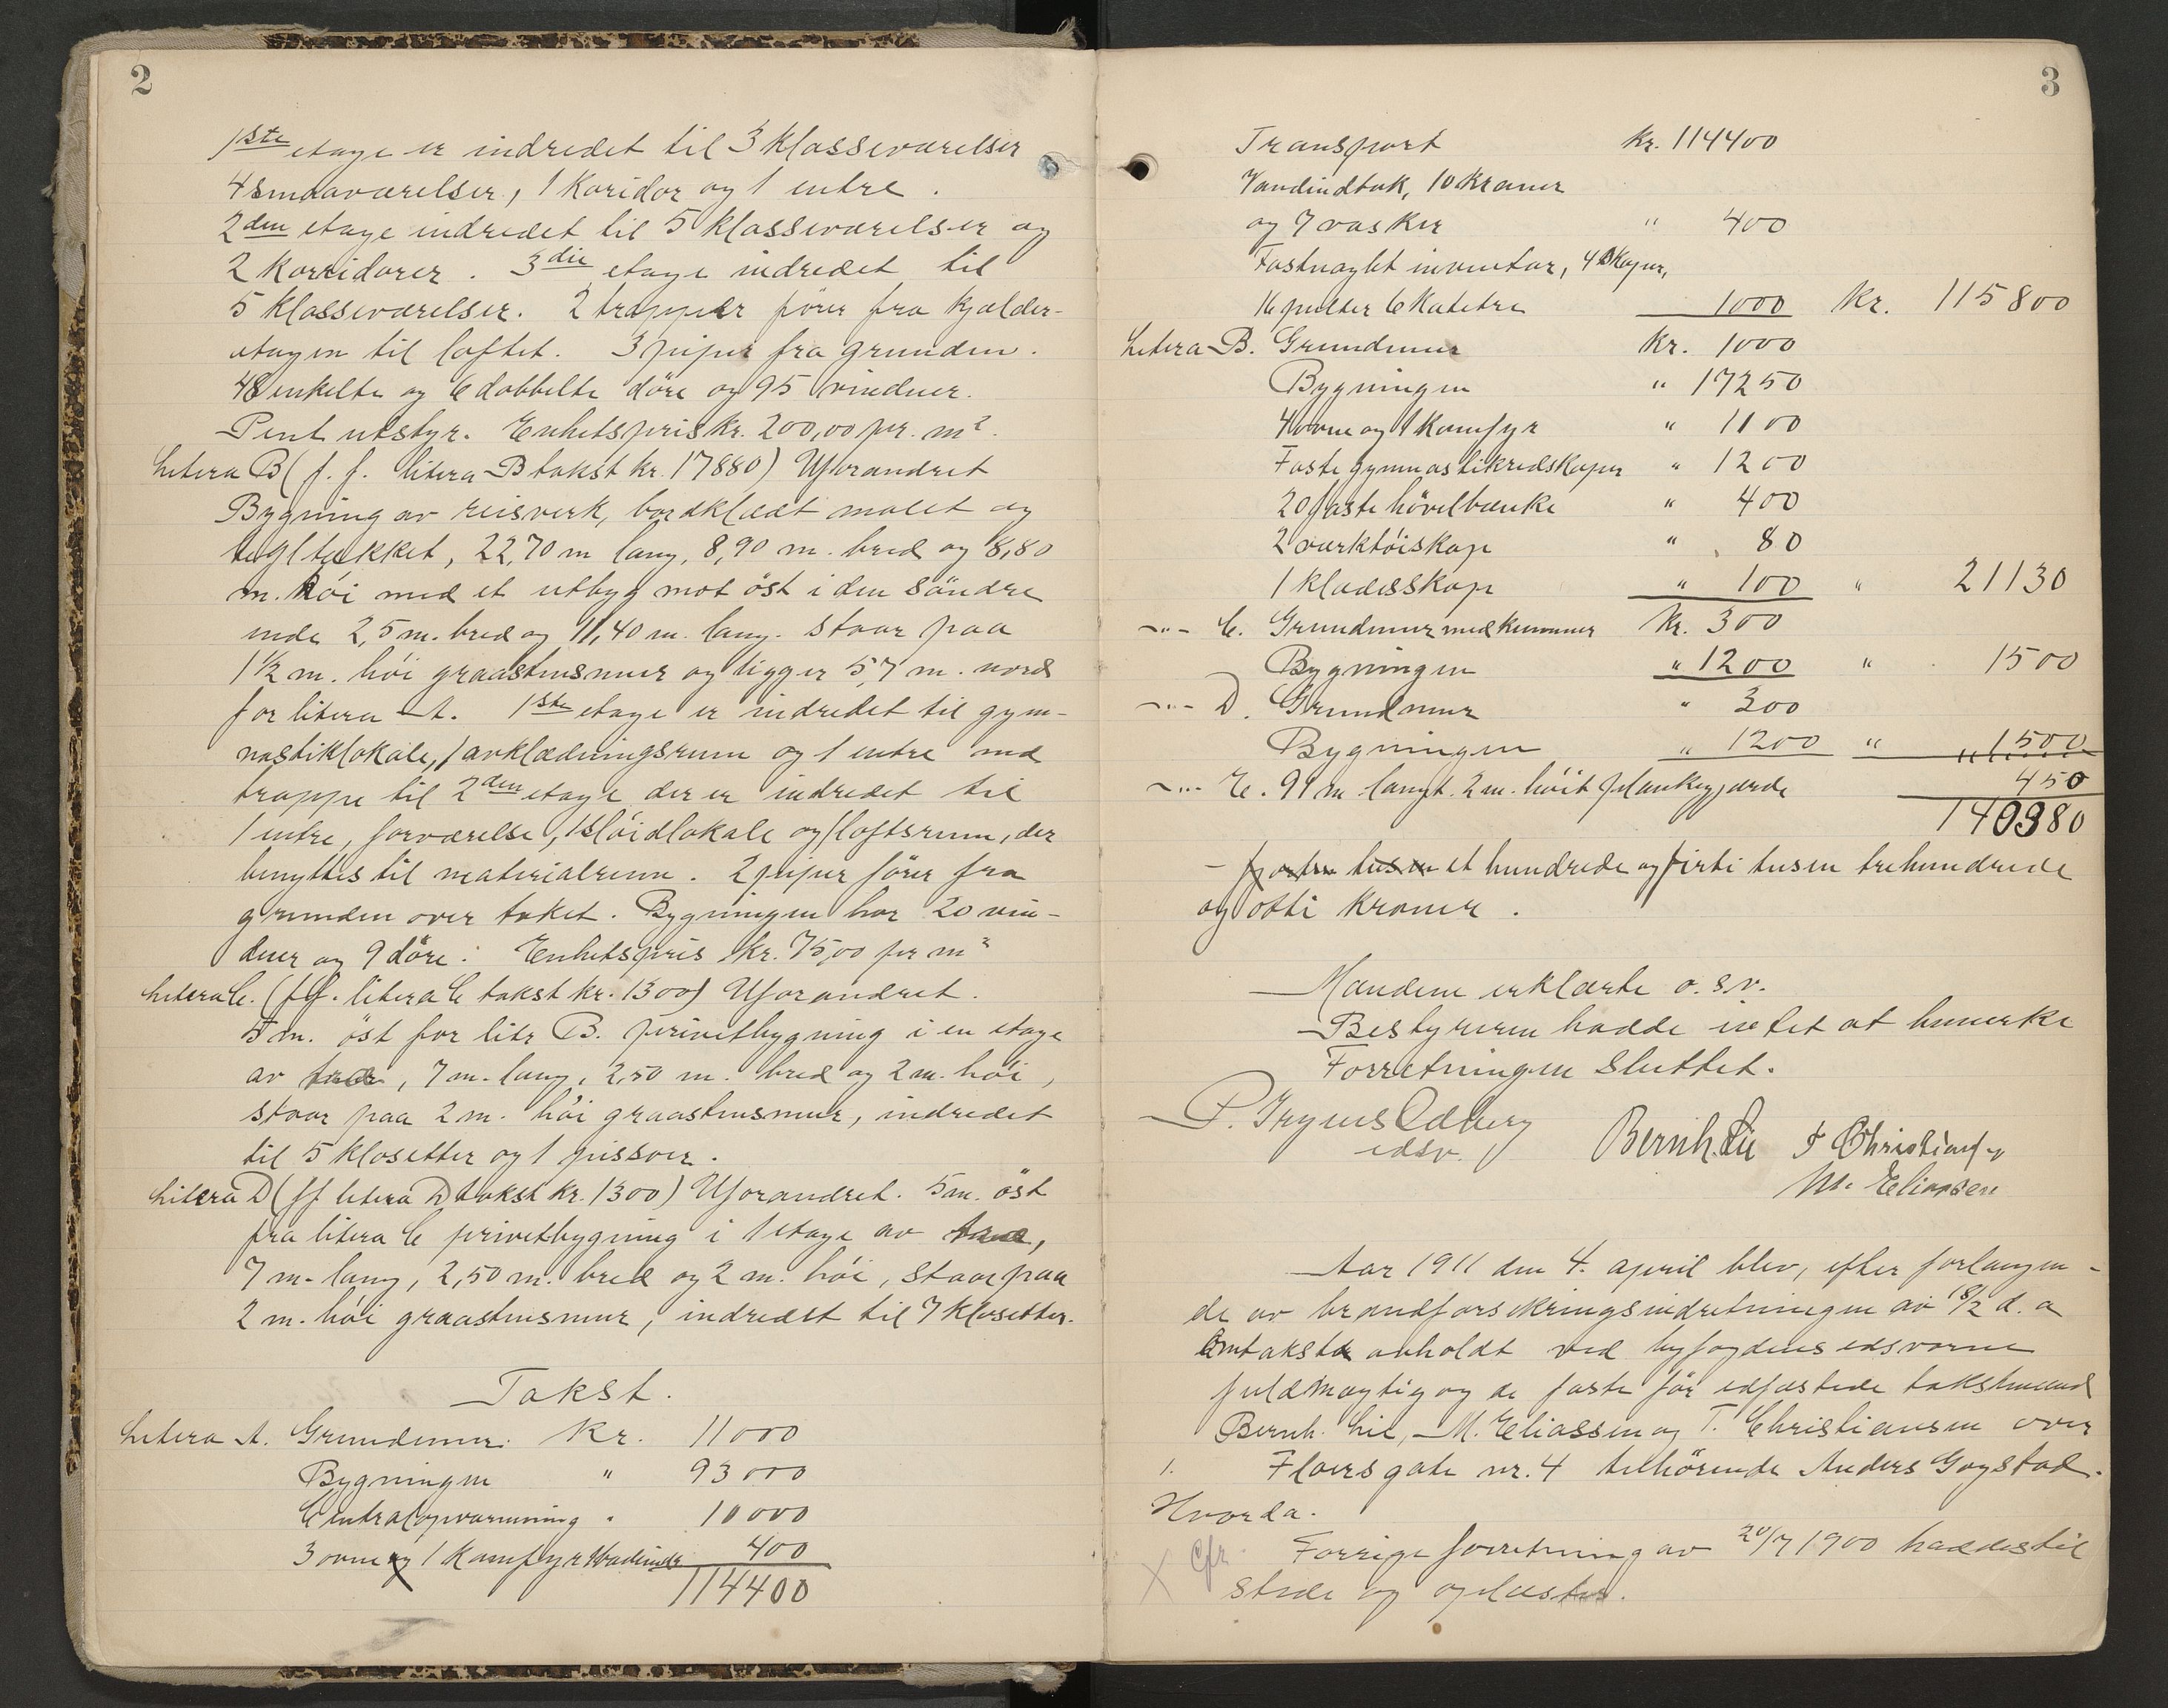 2
1ste etage er indredet til 3 klasseværelser
4 smaaværelser, 1 Koridor og 1 entre.
2den etage indredet til 5 klasseværelser og
2 Korridorer. 3die etage indredet til
5 klasseværelser. 2 trapper fører fra kjælder-
etagen til loftet. 3 piper fra grunden.
48 enkelte og 6 dobbelte döre og 95 vinduer.
Pent utstyr. Enhetspris kr. 200,00 pr. m².
Litera B (f. f. litera B takst kr. 17880) Uforandret
Bygning av reisverk, bordklædt malet og
tegltækket, 22,70 m lang, 8,90 m. bred og 8,80
m. höi med et utbyg mot öst i den söndre
ende 2,5 m. bred og 11,40 m. lang. Staar paa
1½ m. höi graastensmur og ligger 5,7 m. nord
for litera A. 1ste etage er indredet til gym-
nastiklokale, 1 avklædningsrum og 1 entre med
trappe til 2den etage der er indredet til
1 entre, forværelse, 1 slöidlokale og 1 loftsrum, der
benyttes til materialrum. 2 piper förer fra
grunden over taket. Bygningen har 20 vin-
duer og 9 döre: Enhetspris kr. 75,00 per m²
Litera C. (ff. litera C takst kr. 1300) Uforandret.
5 m. öst for litr B. privetbygning i en etage
av træ, 7 m. lang, 2,50 m. bred og 2 m. höi,
staar paa 2 m. höi graastensmur, indredet
til 5 klosetter og 1 pissoir.
Litera D (ff litera D takst kr. 1300) Uforandret. 5 m. öst
fra litera C privetbygning i 1 etage av træ,
7 m. lang, 2,50 m. bred og 2 m. höi, staar paa
2 m. höi graastensmur, indredet til 7 klosetter.
Takst.
Litera A. Grundmur. Kr. 11000
Bygningen " 93000
Centralopvarmning " 10000
3 ovne og 1 Kamfyr 400
114400
3
Transport Kr. 114400
Vandindtak, 10 kraner
og 7 vasker " 400
Fastnaglet inventar, 4 skaper,
16 pulter 6 Katetre 1000 Kr. 115800
Litera B. Grundmur Kr. 1000
Bygningen " 17250
4 ovne og 1 Komfyr " 1100
Faste gymnastikredskaper " 1200
20 faste hövelbænke " 400
2 værktöiskap " 80
1 klædesskap " 100 " 21130
-"- C. Grundmur med kummer Kr. 300
Bygningen " 1200 " 1500
-"- D. Grundmur " 300
Bygningen " 1200 " 1500
-"- E. 91 m. langt 2 m. höit plankegjærde 450
140380
- fjorten tusen et hundrede og firti tusen trehundrede
og otti kroner.
Mændene erklærte o.s.v.
Bestyreren hadde intet at bemerke
Forretningen sluttet.
edsv. Bernh. Lie T Christiansen
M. Eliassen
Aar 1911 den 4. april blev, efter forlangen-
de av brandforsikringsindretningen av 18/2 d. a
omtakster avholdt ved byfogdens edsvorne
fuldmægtig og de faste før edfæstede takstmænd
Bernh. Lie, M. Eliassen og T. Christiansen over
1. Floers gate nr. 4 tilhörende Anders Gogstad.
Hvorda.
× Cfr. Forrige forretning av 20/7 1900 haddes til
stede og oplæstes.